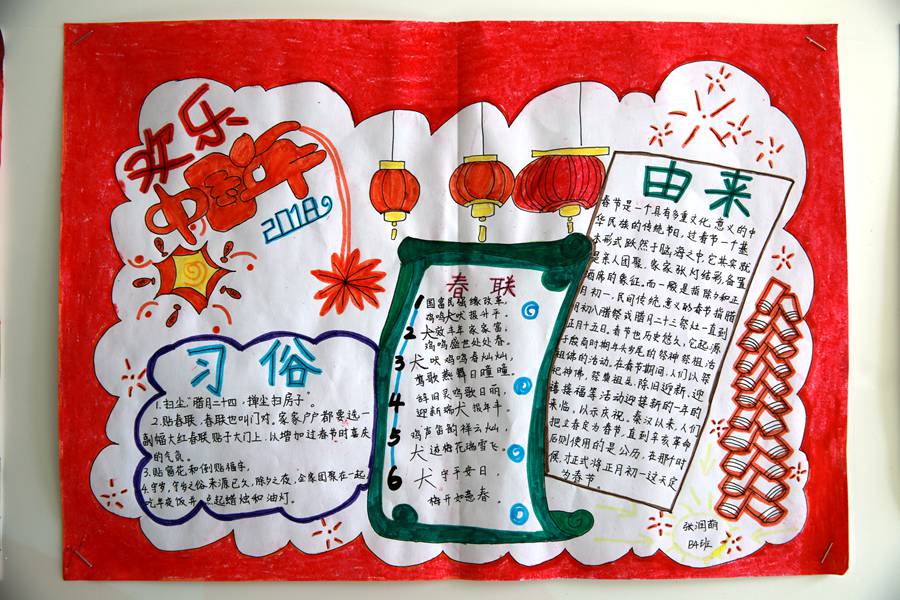 欢乐
中国年
2018
习俗
1.扫尘"腊月二十四,掸尘扫房子"。
2.贴春联,春联也叫门对。家家户户都要选一
副幅大红春联贴于大门上,以增加过春节时喜庆
的气氛。
3.贴窗花和倒贴福字,
4.守岁,守岁之俗来源已久,除夕之夜,全家团聚在一起
吃年夜饭并点起蜡烛和油灯。
春联
1 国富民强缘改革,
鸡鸣犬吠报升平。
2 犬效丰年家家富,
鸡鸣盛世处处春。
3 犬吠鸡鸣春灿灿,
莺歌燕舞日喧喧。
4 辞旧灵鸡歌日丽,
迎新瑞犬报年丰。
5 鸡声笛韵祥云灿,
犬迹梅花瑞雪飞。
6 犬守平安日,
梅开如意春。
由来
春节是一个具有多重文化意义的中
华民族的传统节日,过春节一个基
本形式跃然于脑海之中,它其实就
是亲人团聚。家家张灯结彩,备置
酒席的象征。而一般是指除夕和正
月初一,民间传统意义的春节指腊
月初八腊祭或腊月二十三祭灶一直到
正月十五日。春节也历史悠久,它起源
于殷商时期年头岁尾的祭神祭祖活
动。在春节期间,人们以祭
祀神佛,祭奠祖先,除旧迎新,迎
禧接福等活动迎接新的一年的
来临,以示庆祝。秦汉以来,人们
把立春定为春节,直到辛亥革命
后则使用的是公历,在那个时
候,才正式将正月初一这天定
为春节。
张润萌
B4班